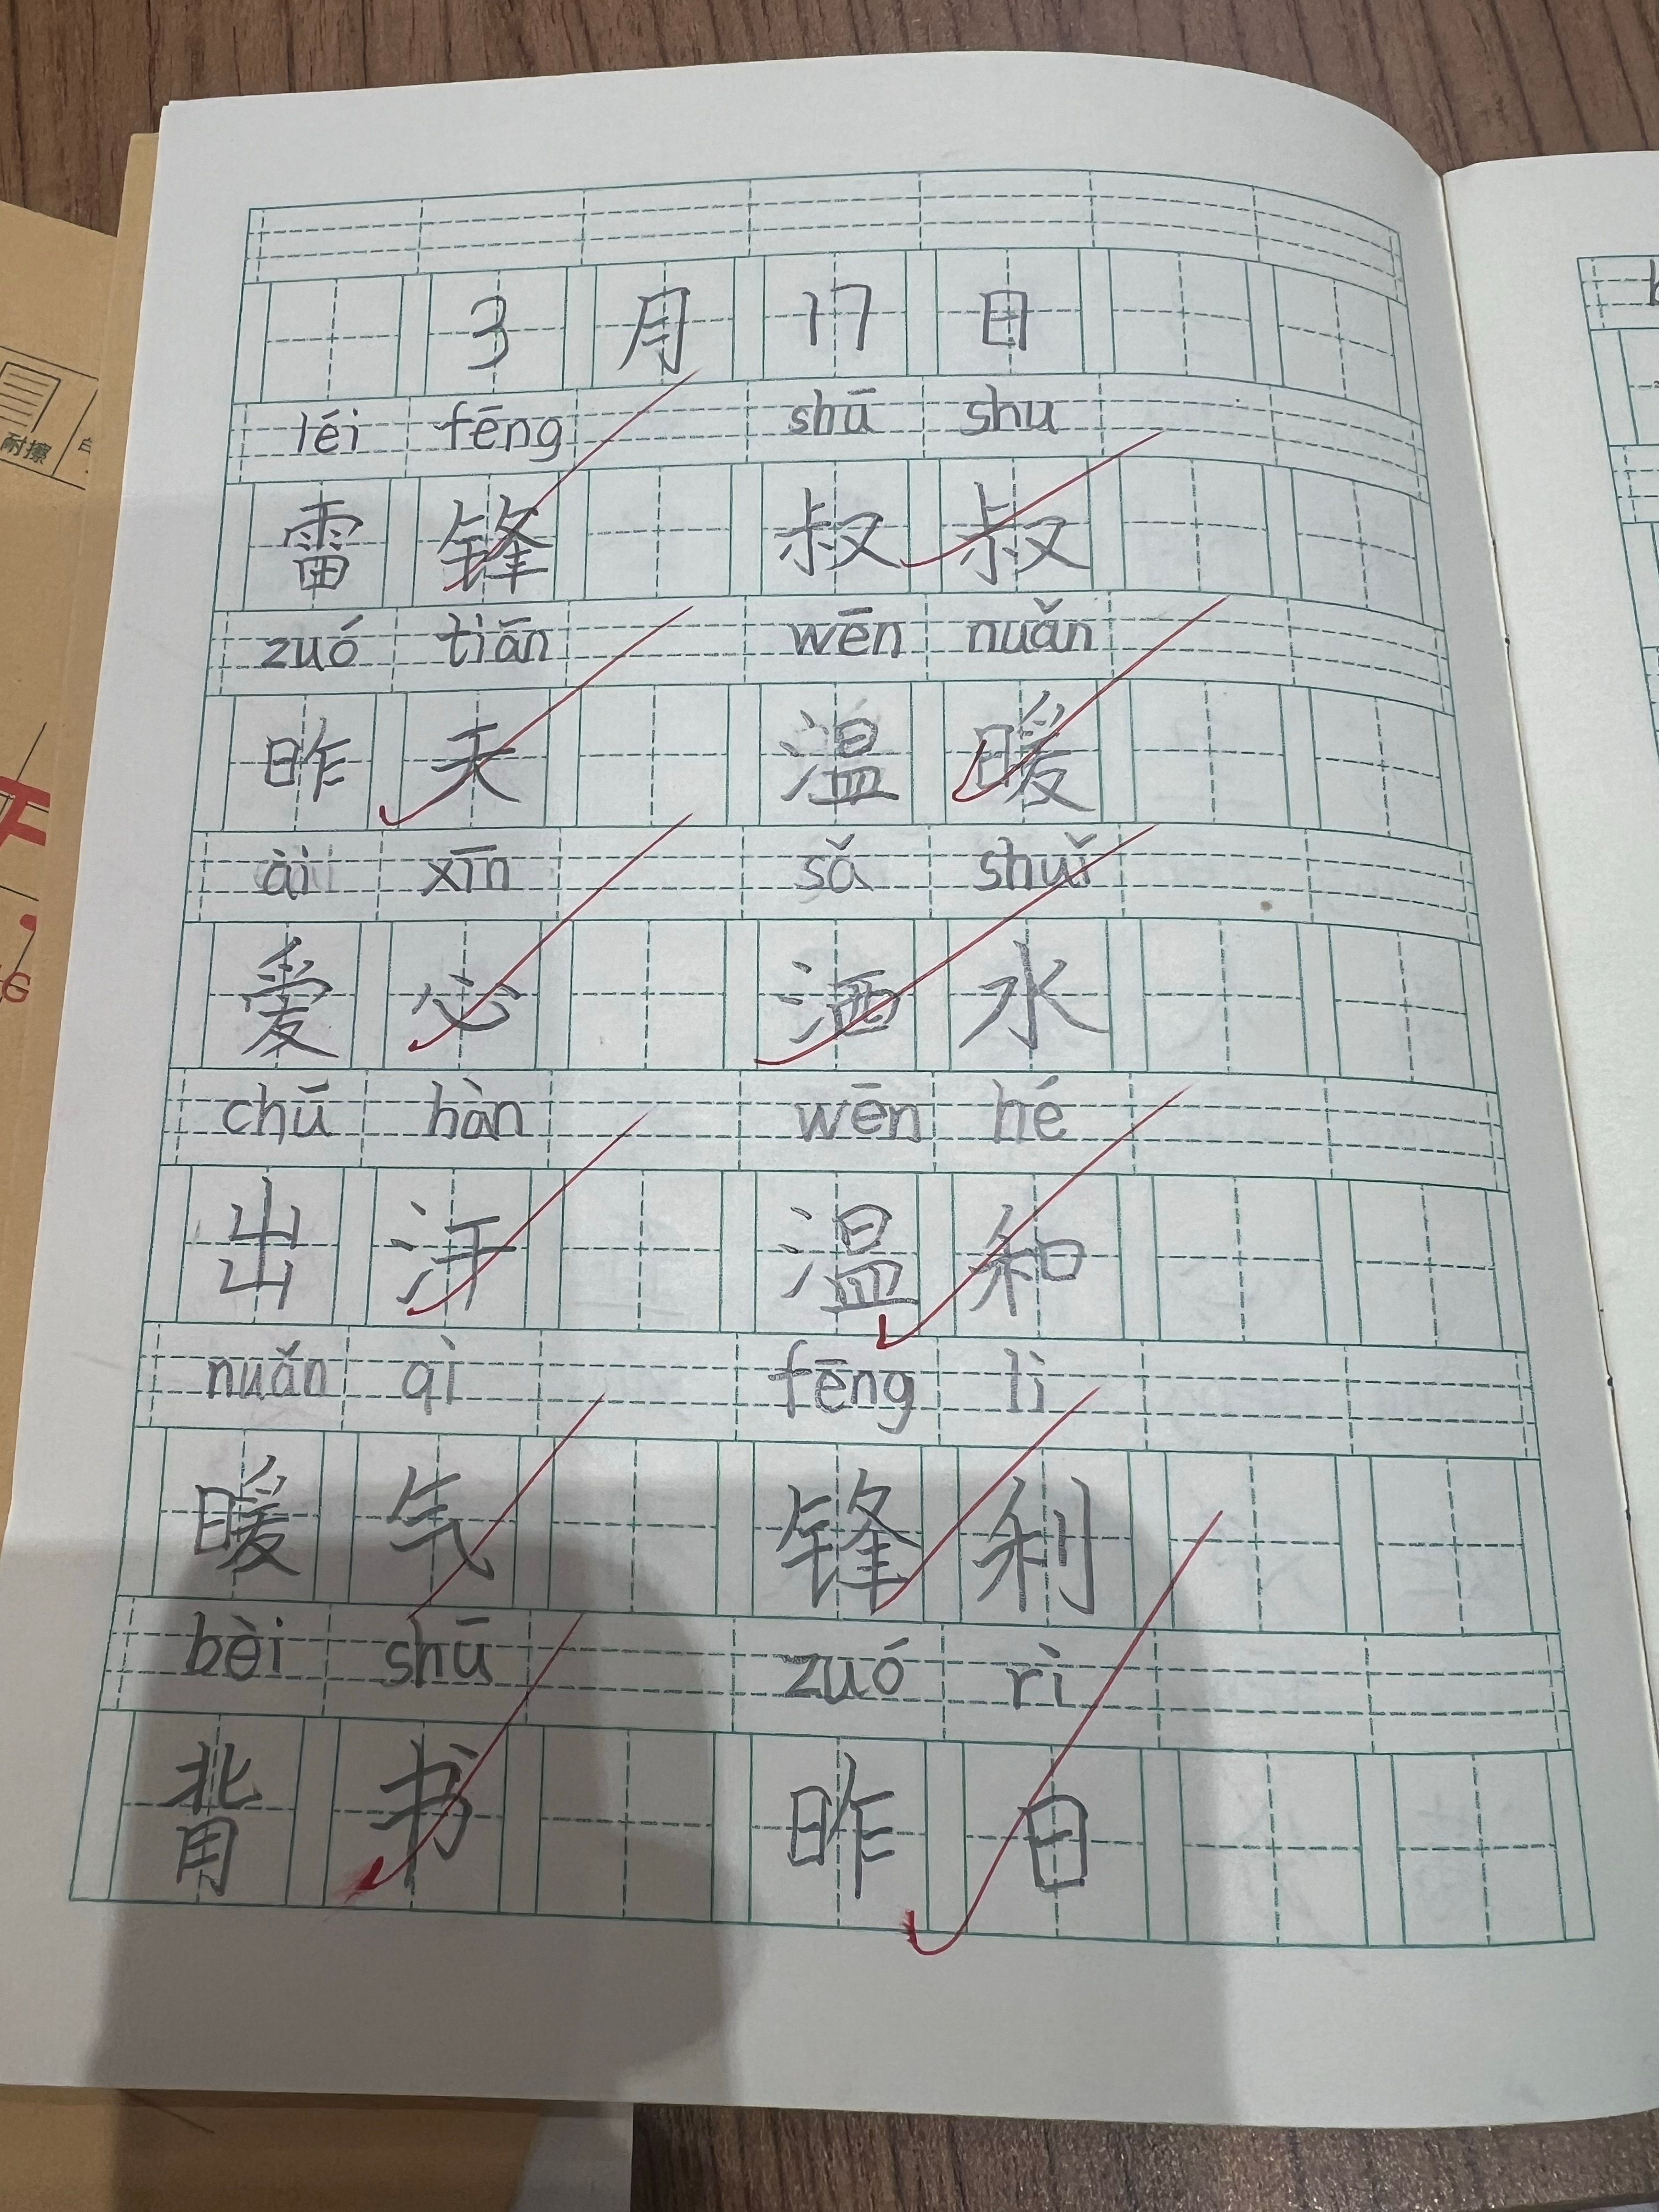 3月17日
léi fēng shū shu
雷锋 叔叔
zuó tiān wēn nuǎn
昨天 温暖
ài xīn sǎ shuǐ
爱心 洒水
chū hàn wēn hé
出汗 温和
nuǎn qì fēng lì
暖气 锋利
bèi shū zuó rì
背书 昨日
耐擦